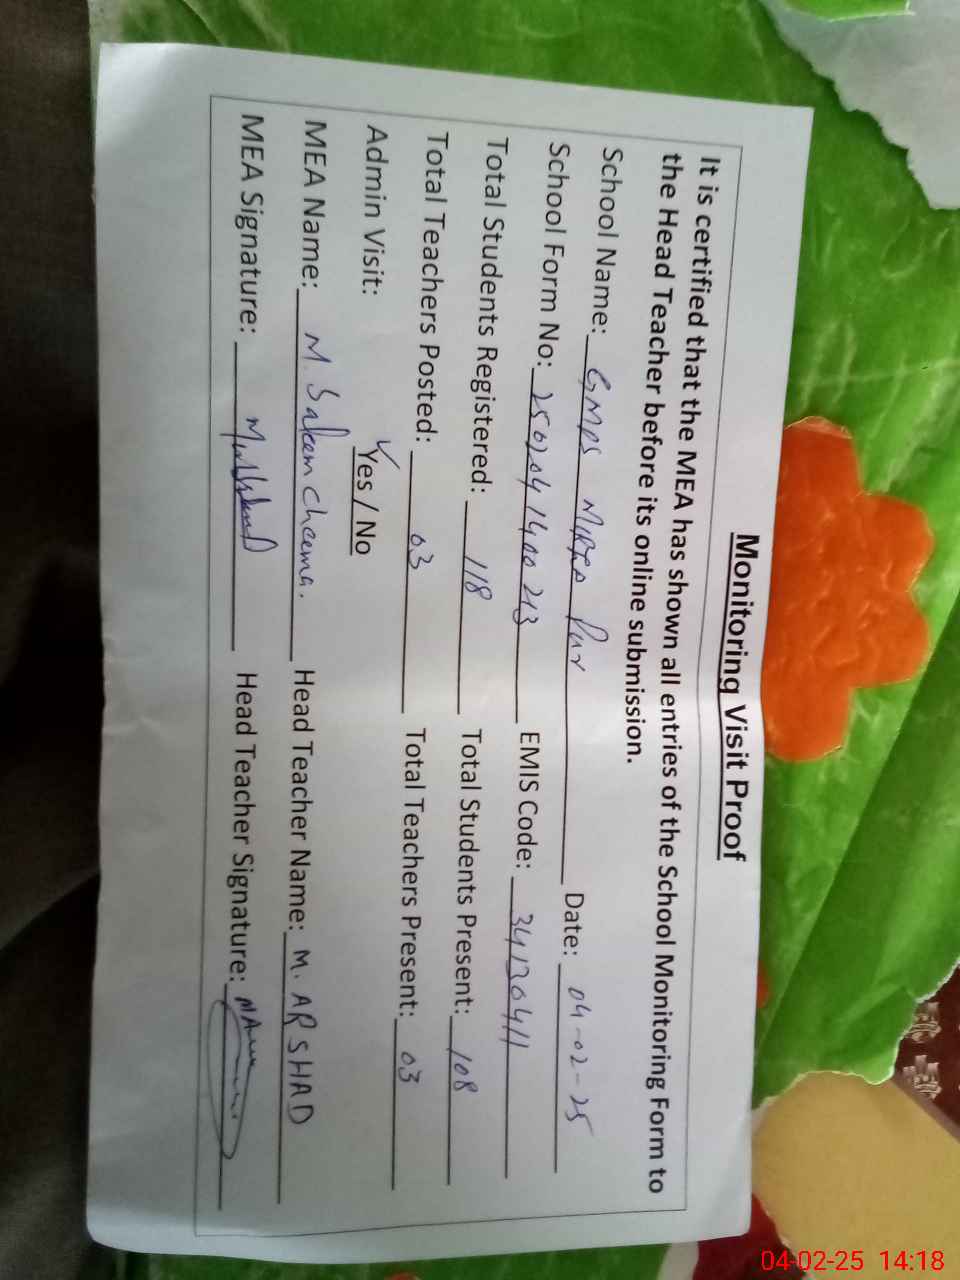 Monitoring Visit Proof
It is certified that the MEA has shown all entries of the School Monitoring Form to
the Head Teacher before its online submission.
School Name: GMPS MIRZA Pur Date: 04-02-25
School Form No: 2502041400213 EMIS Code: 34130411
Total Students Registered: 118 Total Students Present: 108
Total Teachers Posted: 03 Total Teachers Present: 03
Admin Visit: Yes / No
MEA Name: M. Saleem Cheema. Head Teacher Name: M. ARSHAD
MEA Signature: Head Teacher Signature:
04-02-25 14:18